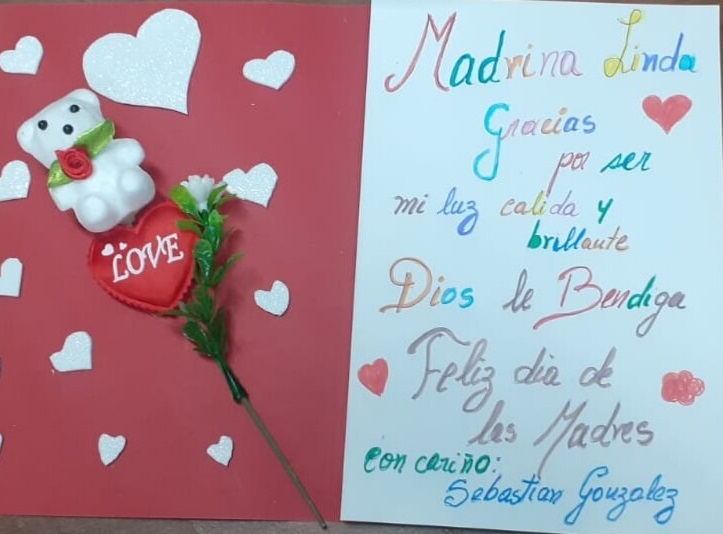 LOVE
Madrina Linda
Gracias
por ser
mi luz calida y
brillante
Dios le Bendiga
Feliz dia de
las Madres
con cariño:
Sebastian Gonzalez